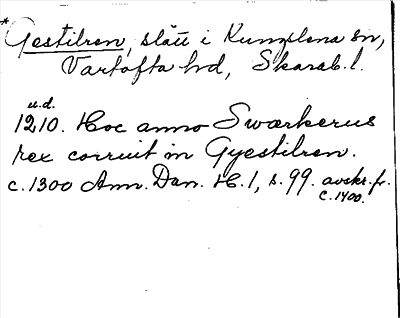 *Gestilren, slätt i Kungslena sn,
Vartofta hd, Skarab. l.
u.d.
1210. Hoc anno Swærkerus
rex corruit in Gyestilren.
c. 1300 Ann. Dan. H. 1, s. 99. avskr. fr.
c. 1400.